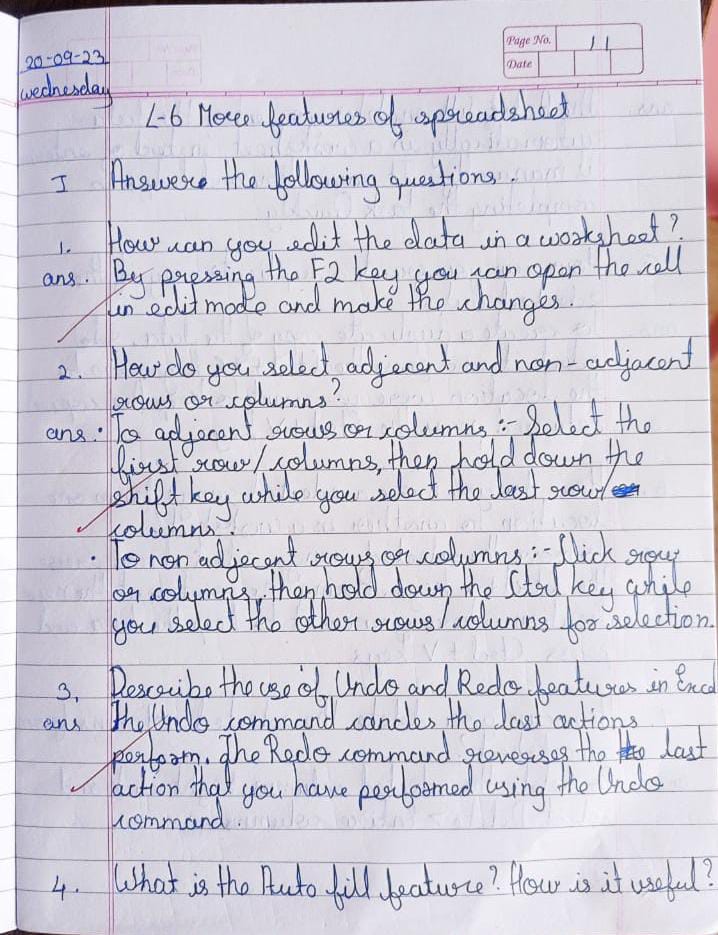 20-09-23
Wednesday
Page No. 11
Date
L-6 More features of spreadsheet
I Answere the following questions.
1. How can you edit the data in a worksheet?
ans. By pressing the F2 key you can open the cell
in edit mode and make the changes.
2. How do you select adjecent and non-adjacent
rows or columns?
ans. • To adjecent rows or columns :- Select the
first row/columns, then hold down the
shift key while you select the last row/
columns.
• To non adjecent rows or columns :- Click row
or columns. then hold down the Ctrl key while
you select the other rows/columns for selection.
3. Describe the use of Undo and Redo features in Excel
ans The Undo command cancles the last actions
perform. The Redo command reverses the last
action that you have performed using the Undo
command.
4. What is the Auto fill feature? How is it useful?